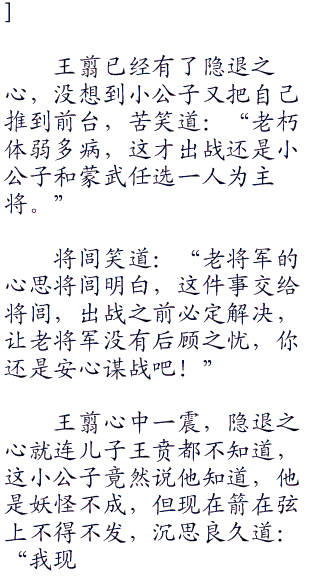 ]
王翦已经有了隐退之
心，没想到小公子又把自己
推到前台，苦笑道：“老朽
体弱多病，这才出战还是小
公子和蒙武任选一人为主
将。”
将闾笑道：“老将军的
心思将闾明白，这件事交给
将闾，出战之前必定解决，
让老将军没有后顾之忧，你
还是安心谋战吧！”
王翦心中一震，隐退之
心就连儿子王贲都不知道，
这小公子竟然说他知道，他
是妖怪不成，但现在箭在弦
上不得不发，沉思良久道：
“我现